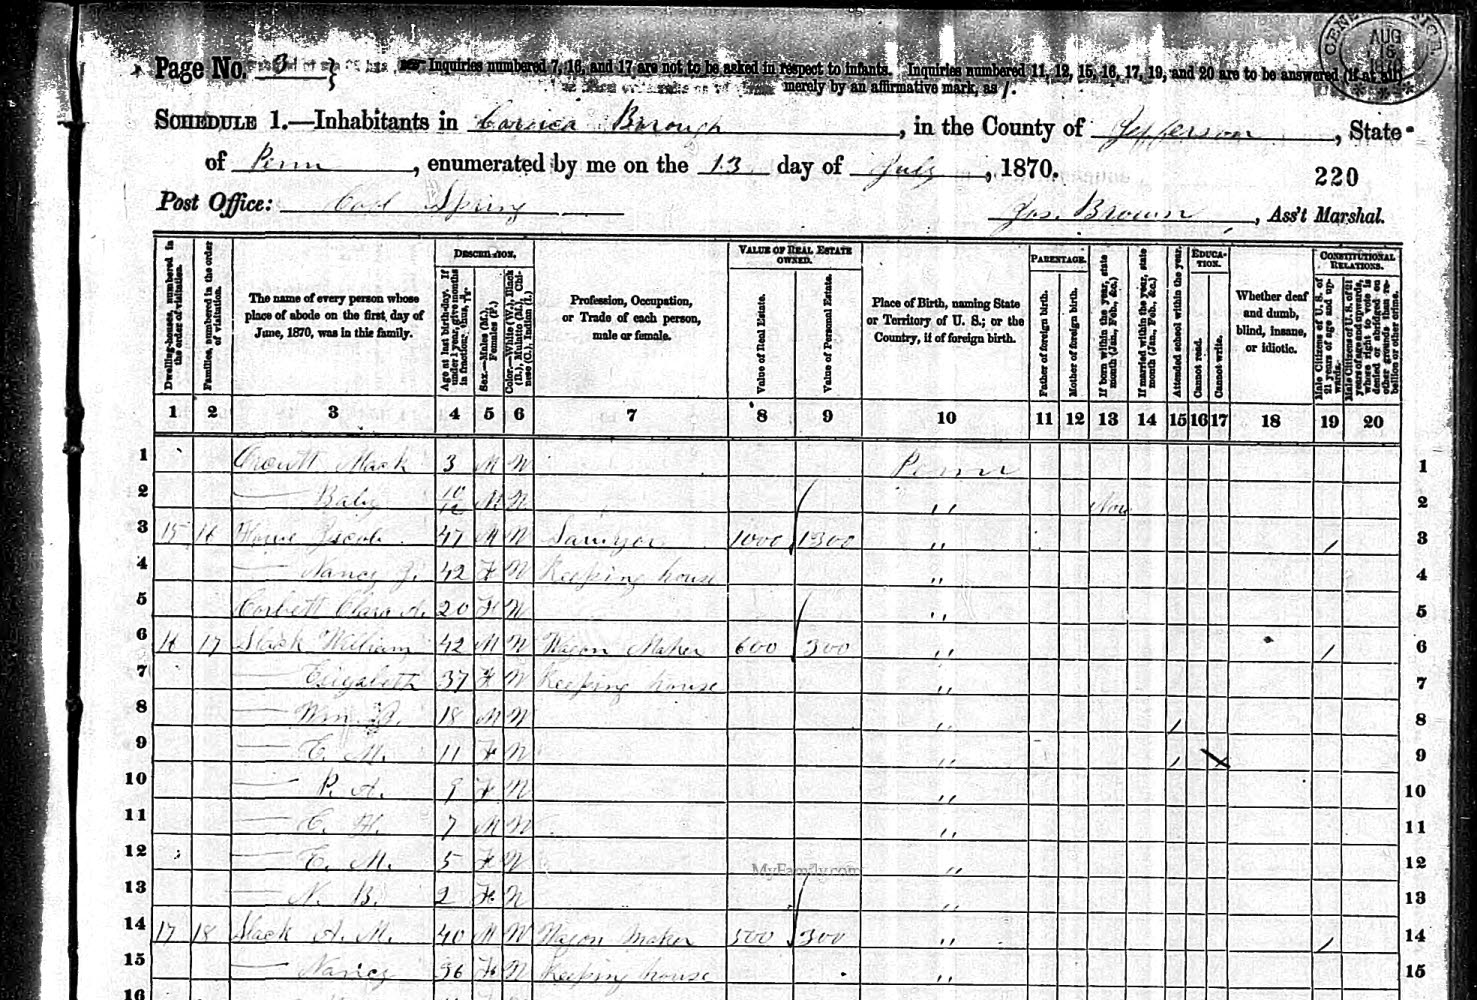 CENSUS OFFICE AUG 16 1870
Page No. 3
Inquiries numbered 7, 16, and 17 are not to be asked in respect to infants. Inquiries numbered 11, 12, 15, 16, 17, 19, and 20 are to be answered (if at all)
merely by an affirmative mark, as /.
SCHEDULE 1.—Inhabitants in Corsica Borough, in the County of Jefferson, State
of Penn, enumerated by me on the 13 day of July, 1870.
220
Post Office: Spring
Jas. Brown, Ass't Marshal.
DESCRIPTION.
VALUE OF REAL ESTATE OWNED.
PARENTAGE.
EDUCATION.
CONSTITUTIONAL RELATIONS.
Dwelling-houses, numbered in the order of visitation.
Families, numbered in the order of visitation.
The name of every person whose place of abode on the first day of June, 1870, was in this family.
Age at last birth-day. If under 1 year, give months in fraction, thus,
Sex.—Males (M.), Females (F.)
Color.—White (W.), Black (B.), Mulatto (M.), Chinese (C.), Indian (I.)
Profession, Occupation, or Trade of each person, male or female.
Value of Real Estate.
Value of Personal Estate.
Place of Birth, naming State or Territory of U. S.; or the Country, if of foreign birth.
Father of foreign birth.
Mother of foreign birth.
If born within the year, state month (Jan., Feb., &c.)
If married within the year, state month (Jan., Feb., &c.)
Attended school within the year.
Cannot read.
Cannot write.
Whether deaf and dumb, blind, insane, or idiotic.
Male Citizens of U. S. of 21 years of age and upwards.
Male Citizens of U. S. of 21 years of age and upwards, whose right to vote is denied or abridged on other grounds than rebellion or other crime.
1 2 3 4 5 6 7 8 9 10 11 12 13 14 15 16 17 18 19 20
1 Mack 3 M W Penn 1
2 — Baby 10/12 M W " Nov 2
3 15 16 Jacob 47 M W 1000 1300 " / 3
4 — Nancy J. 42 F W Keeping house " 4
5 Corbett Clara A. 20 F W " 5
6 16 17 Slack William 42 M W Wagon Maker 600 300 " / 6
7 — Elizabeth 37 F W Keeping house " 7
8 — Wm 18 M W " / 8
9 — E. M. 11 F W " / 9
10 — P. A. 9 F W " 10
11 — 7 M W " 11
12 — E. M. 5 F W " 12
MyFamily.com
13 — N. B. 2 F W " 13
14 17 18 Slack A. M. 40 M W Wagon Maker 500 300 " / 14
15 — Nancy 36 F W Keeping house " 15
16